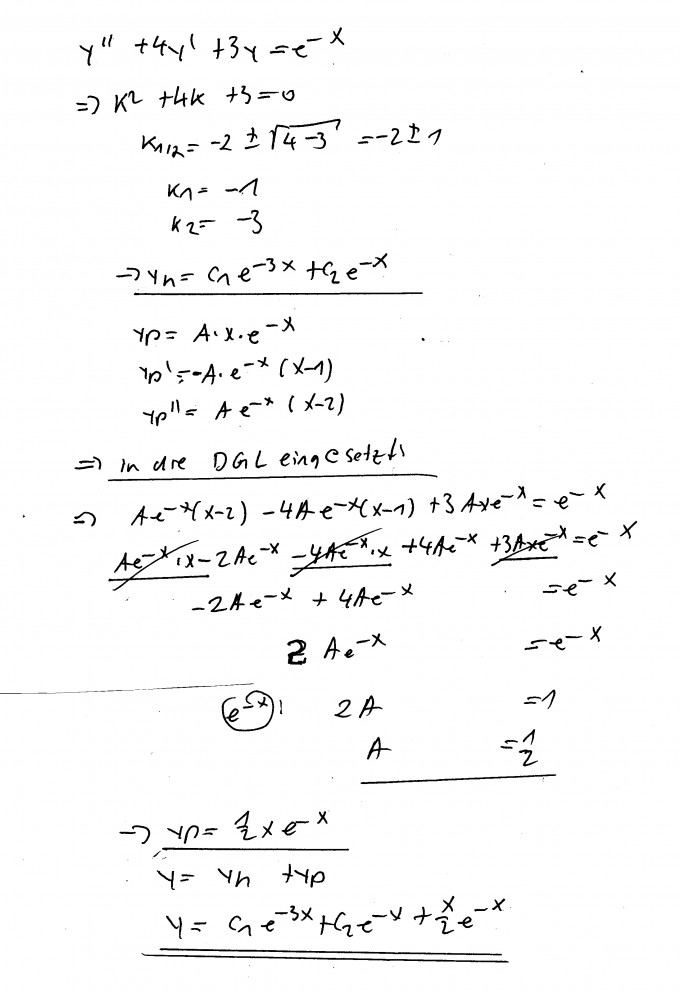 y'' + 4y' + 3y = e^{-x}
=> k² + 4k + 3 = 0
k_{1/2} = -2 ± √(4-3) = -2 ± 1
k_1 = -1
k_2 = -3
→ y_h = C_1 e^{-3x} + C_2 e^{-x}
y_p = A·x·e^{-x}
y_p' = -A·e^{-x} (x-1)
y_p'' = A e^{-x} (x-2)
=> in die DGL eingesetzt:
=> A e^{-x}(x-2) - 4A e^{-x}(x-1) + 3 A x e^{-x} = e^{-x}
A e^{-x}·x - 2A e^{-x} - 4A e^{-x}·x + 4A e^{-x} + 3A x e^{-x} = e^{-x}
-2A e^{-x} + 4A e^{-x} = e^{-x}
2 A e^{-x} = e^{-x}
e^{-x}: 2A = 1
A = 1/2
→ y_p = 1/2 x e^{-x}
y = y_h + y_p
y = C_1 e^{-3x} + C_2 e^{-x} + x/2 e^{-x}